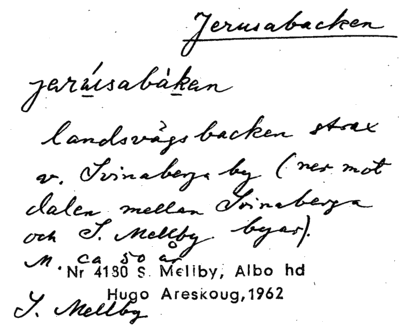 Jerusabacken
jerúsabàkan
landsvägsbacken strax
v. Svinaberga by (ner mot
dalen mellan Svinaberga
och S. Mellby byar).
M. ca 50 år
Nr 4130 S. Mellby, Albo hd
Hugo Areskoug, 1962
S. Mellby